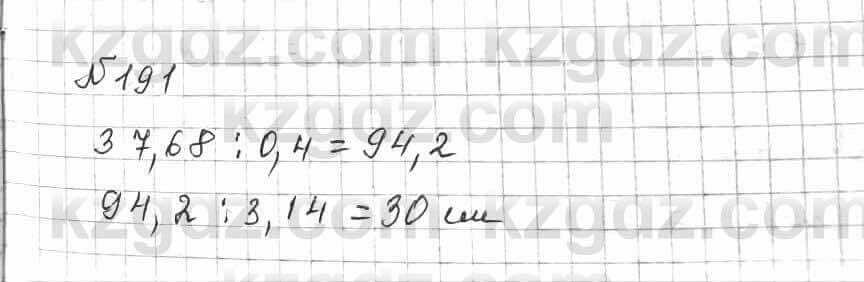 kzgdz.com kzgdz.com
№191
kzgdz.com
37,68 : 0,4 = 94,2
94,2 : 3,14 = 30 см
kzgdz.com kzgdz.com
kzgdz.com